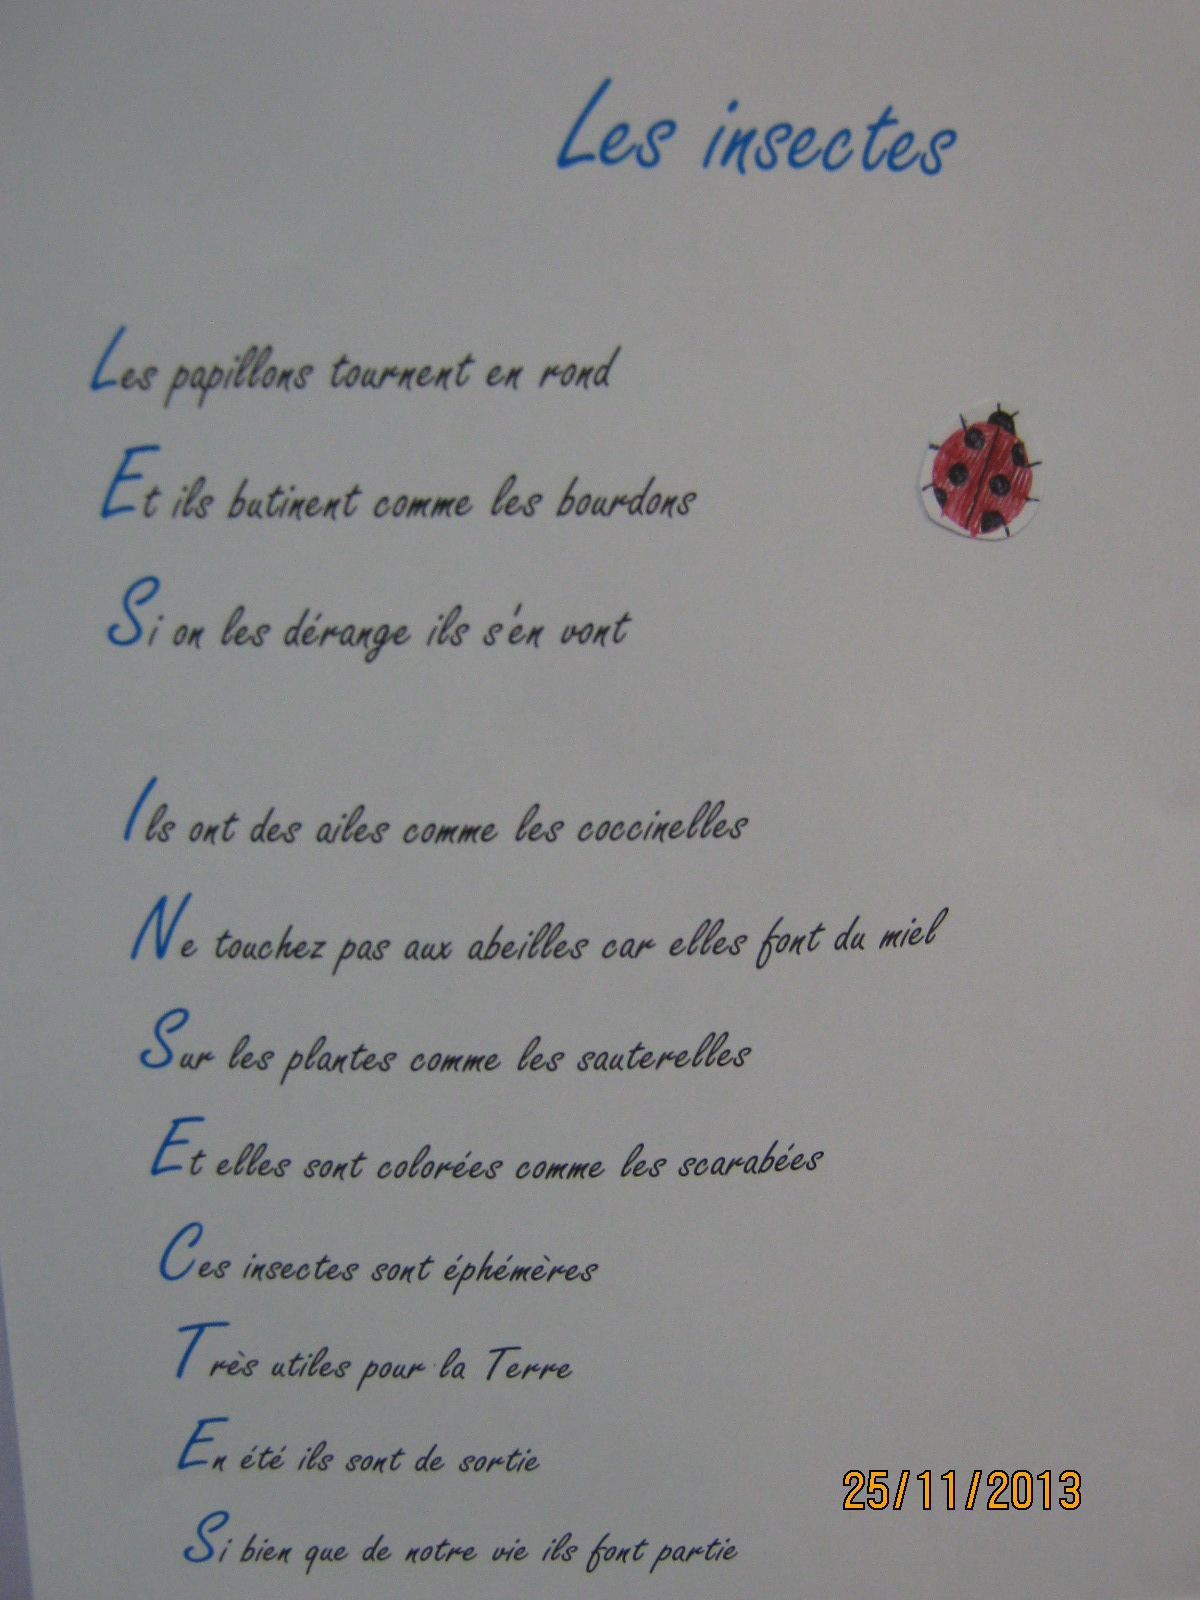 Les insectes
Les papillons tournent en rond
Et ils butinent comme les bourdons
Si on les dérange ils s'en vont
Ils ont des ailes comme les coccinelles
Ne touchez pas aux abeilles car elles font du miel
Sur les plantes comme les sauterelles
Et elles sont colorées comme les scarabées
Ces insectes sont éphémères
Très utiles pour la Terre
En été ils sont de sortie
Si bien que de notre vie ils font partie
25/11/2013